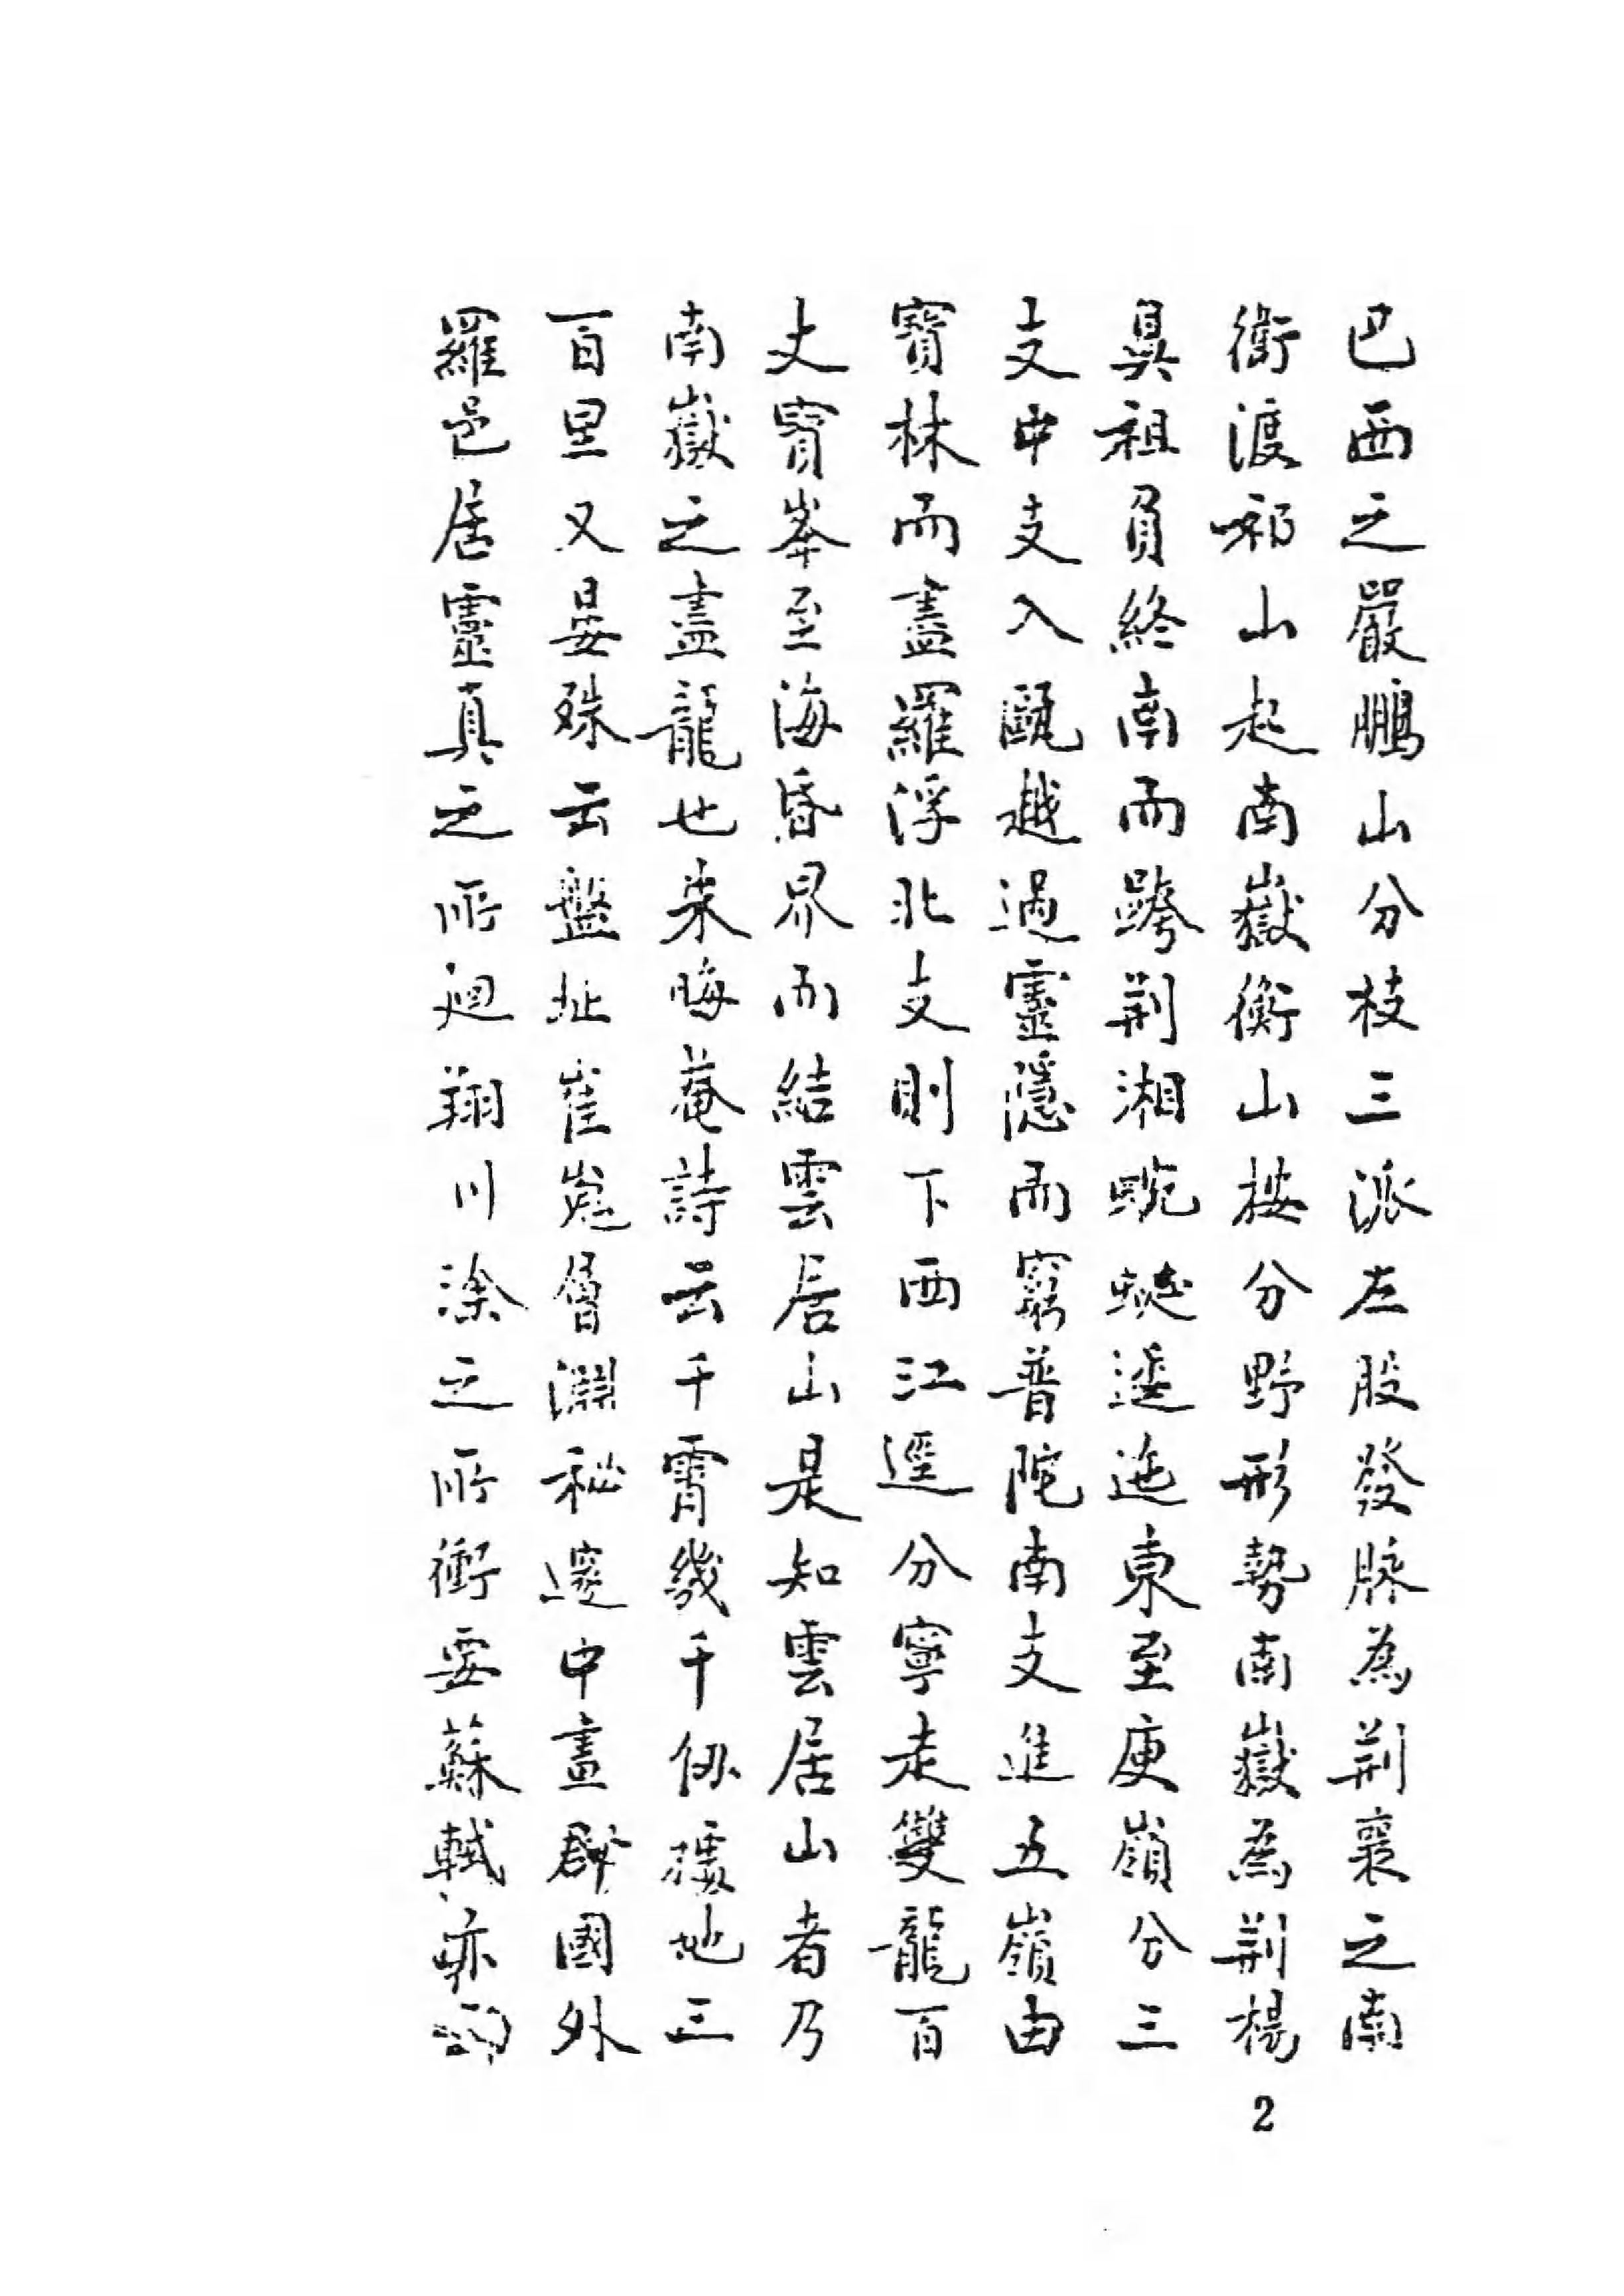 巴西之嚴鵬山分枝三派左股發脉為荆襄之南
衡渡𫪁山起南嶽衡山按分野形勢南嶽為荆楊
鼻祖負終南而跨荆湘蜿蜒逶迤東至庾嶺分三
支中支入甌越過靈隱而窮普陀南支進五嶺由
寳林而盡羅浮北支則下西江逕分寧走雙龍百
丈寳峯至海昏界而結雲居山是知雲居山者乃
南嶽之盡龍也朱晦菴詩云千霄幾千仞據地三
百里又晏殊云盤址崔嵬層淵秘邃中盡群國外
羅邑居靈真之所廻翔川涂之所衝要蘇軾亦
2